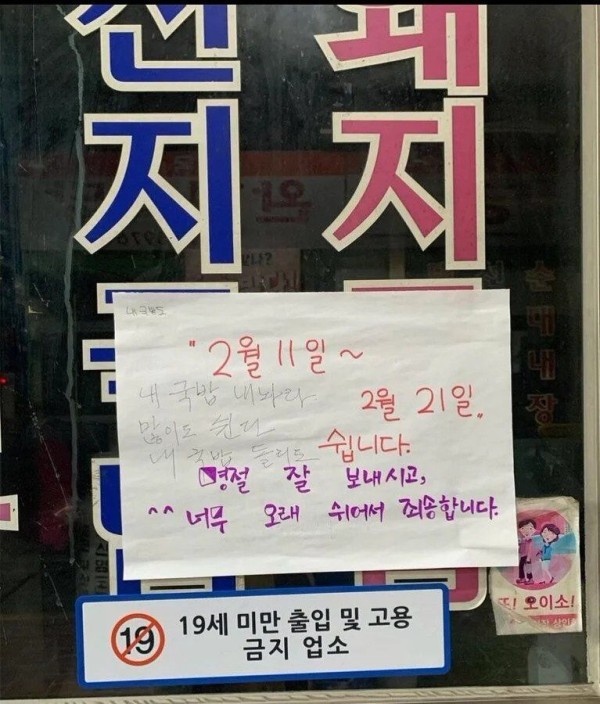 돼지
선지
순대내장
내 국밥도
" 2월 11일 ~
2월 21일.
쉽니다.
내 국밥 내놔라
많이도 쉰다
내 국밥 돌리도
명절 잘 보내시고,
^^ 너무 오래 쉬어서 죄송합니다.
또! 오이소!
19 19세 미만 출입 및 고용
금지 업소